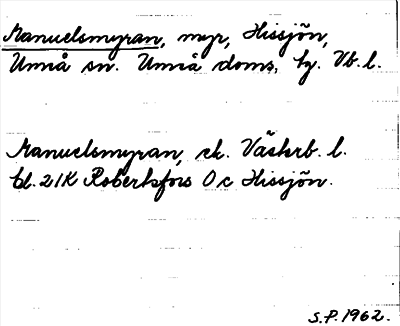 Manuelsmyran, myr, Hissjön,
Umeå sn. Umeå doms. tg. Vb. l.
Manuelsmyran, ek. Västerb. l.
bl. 21K Robertsfors O c Hissjön.
S.P. 1962.